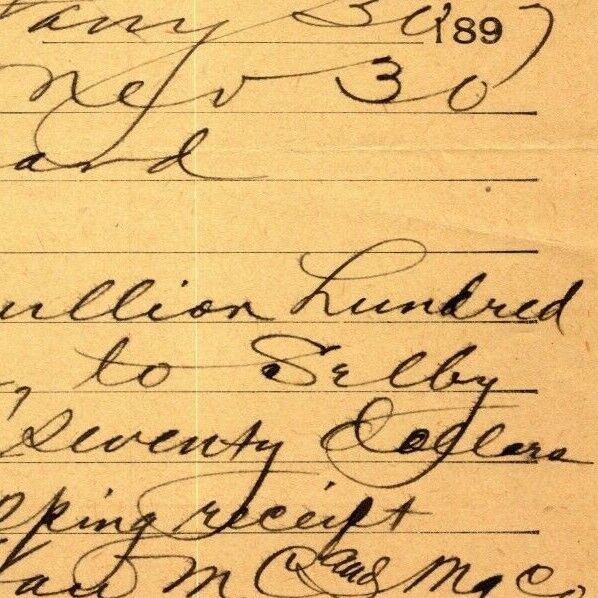 30 1897
Nev 30
and
ullion hundred
to Selby
seventy dollars
pping receipt
M Co